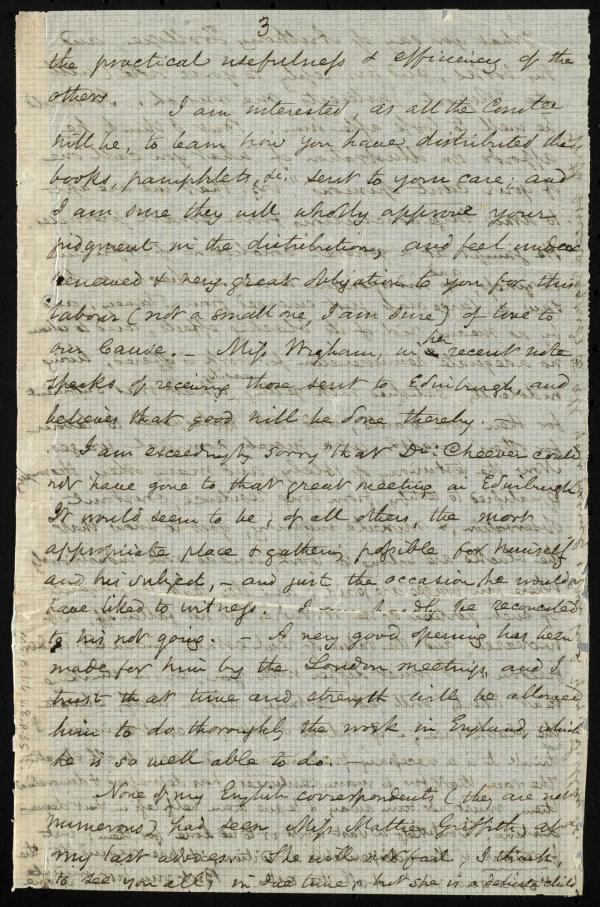 3
the practical usefulness & efficiency of the
others.
I am interested, as all the Comtee
will be, to learn how you have distributed the
books, pamphlets, &c. sent to your care, and
I am sure they will wholly approve your
judgment in the distribution, and feel under
renewed & very great obligation to you for this
labour (not a small one, I am sure) of time to
our Cause. – Miss Wigham, in her recent note
speaks of receiving those sent to Edinburgh, and
believes that good will be done thereby. –
I am exceedingly sorry that Dr. Cheever could
not have gone to that great meeting in Edinburgh.
It would seem to be, of all others, the most
appropriate place & gathering possible for himself
and his subject, – and just the occasion he would
have liked to witness. I can hardly be reconciled
to his not going. – A very good opening has been
made for him by the London meetings, and I
trust that time and strength will be allowed
him to do thoroughly the work, in England, which
he is so well able to do. –
None of my English correspondents (they are not
numerous) had seen Miss Mattie Griffith at
my last advices. She will not fail, I think,
to see you all, in due time, but she is a delicate child